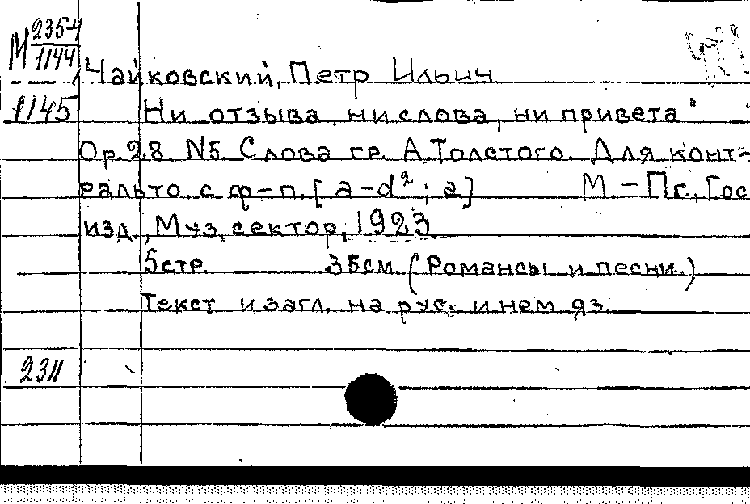 М 235-4
1144
Чайковский, Петр Ильич
1145
Ни отзыва, ни слова, ни привета"
Op.28 N5. Слова гр. А.Толстого. Для конт-
ральто с ф-п. [a-d²; a] М.-Пг., Гос.
изд., Муз. сектор, 1923
5стр. 35см. (Романсы и песни.)
Текст и загл. на рус. и нем яз
234